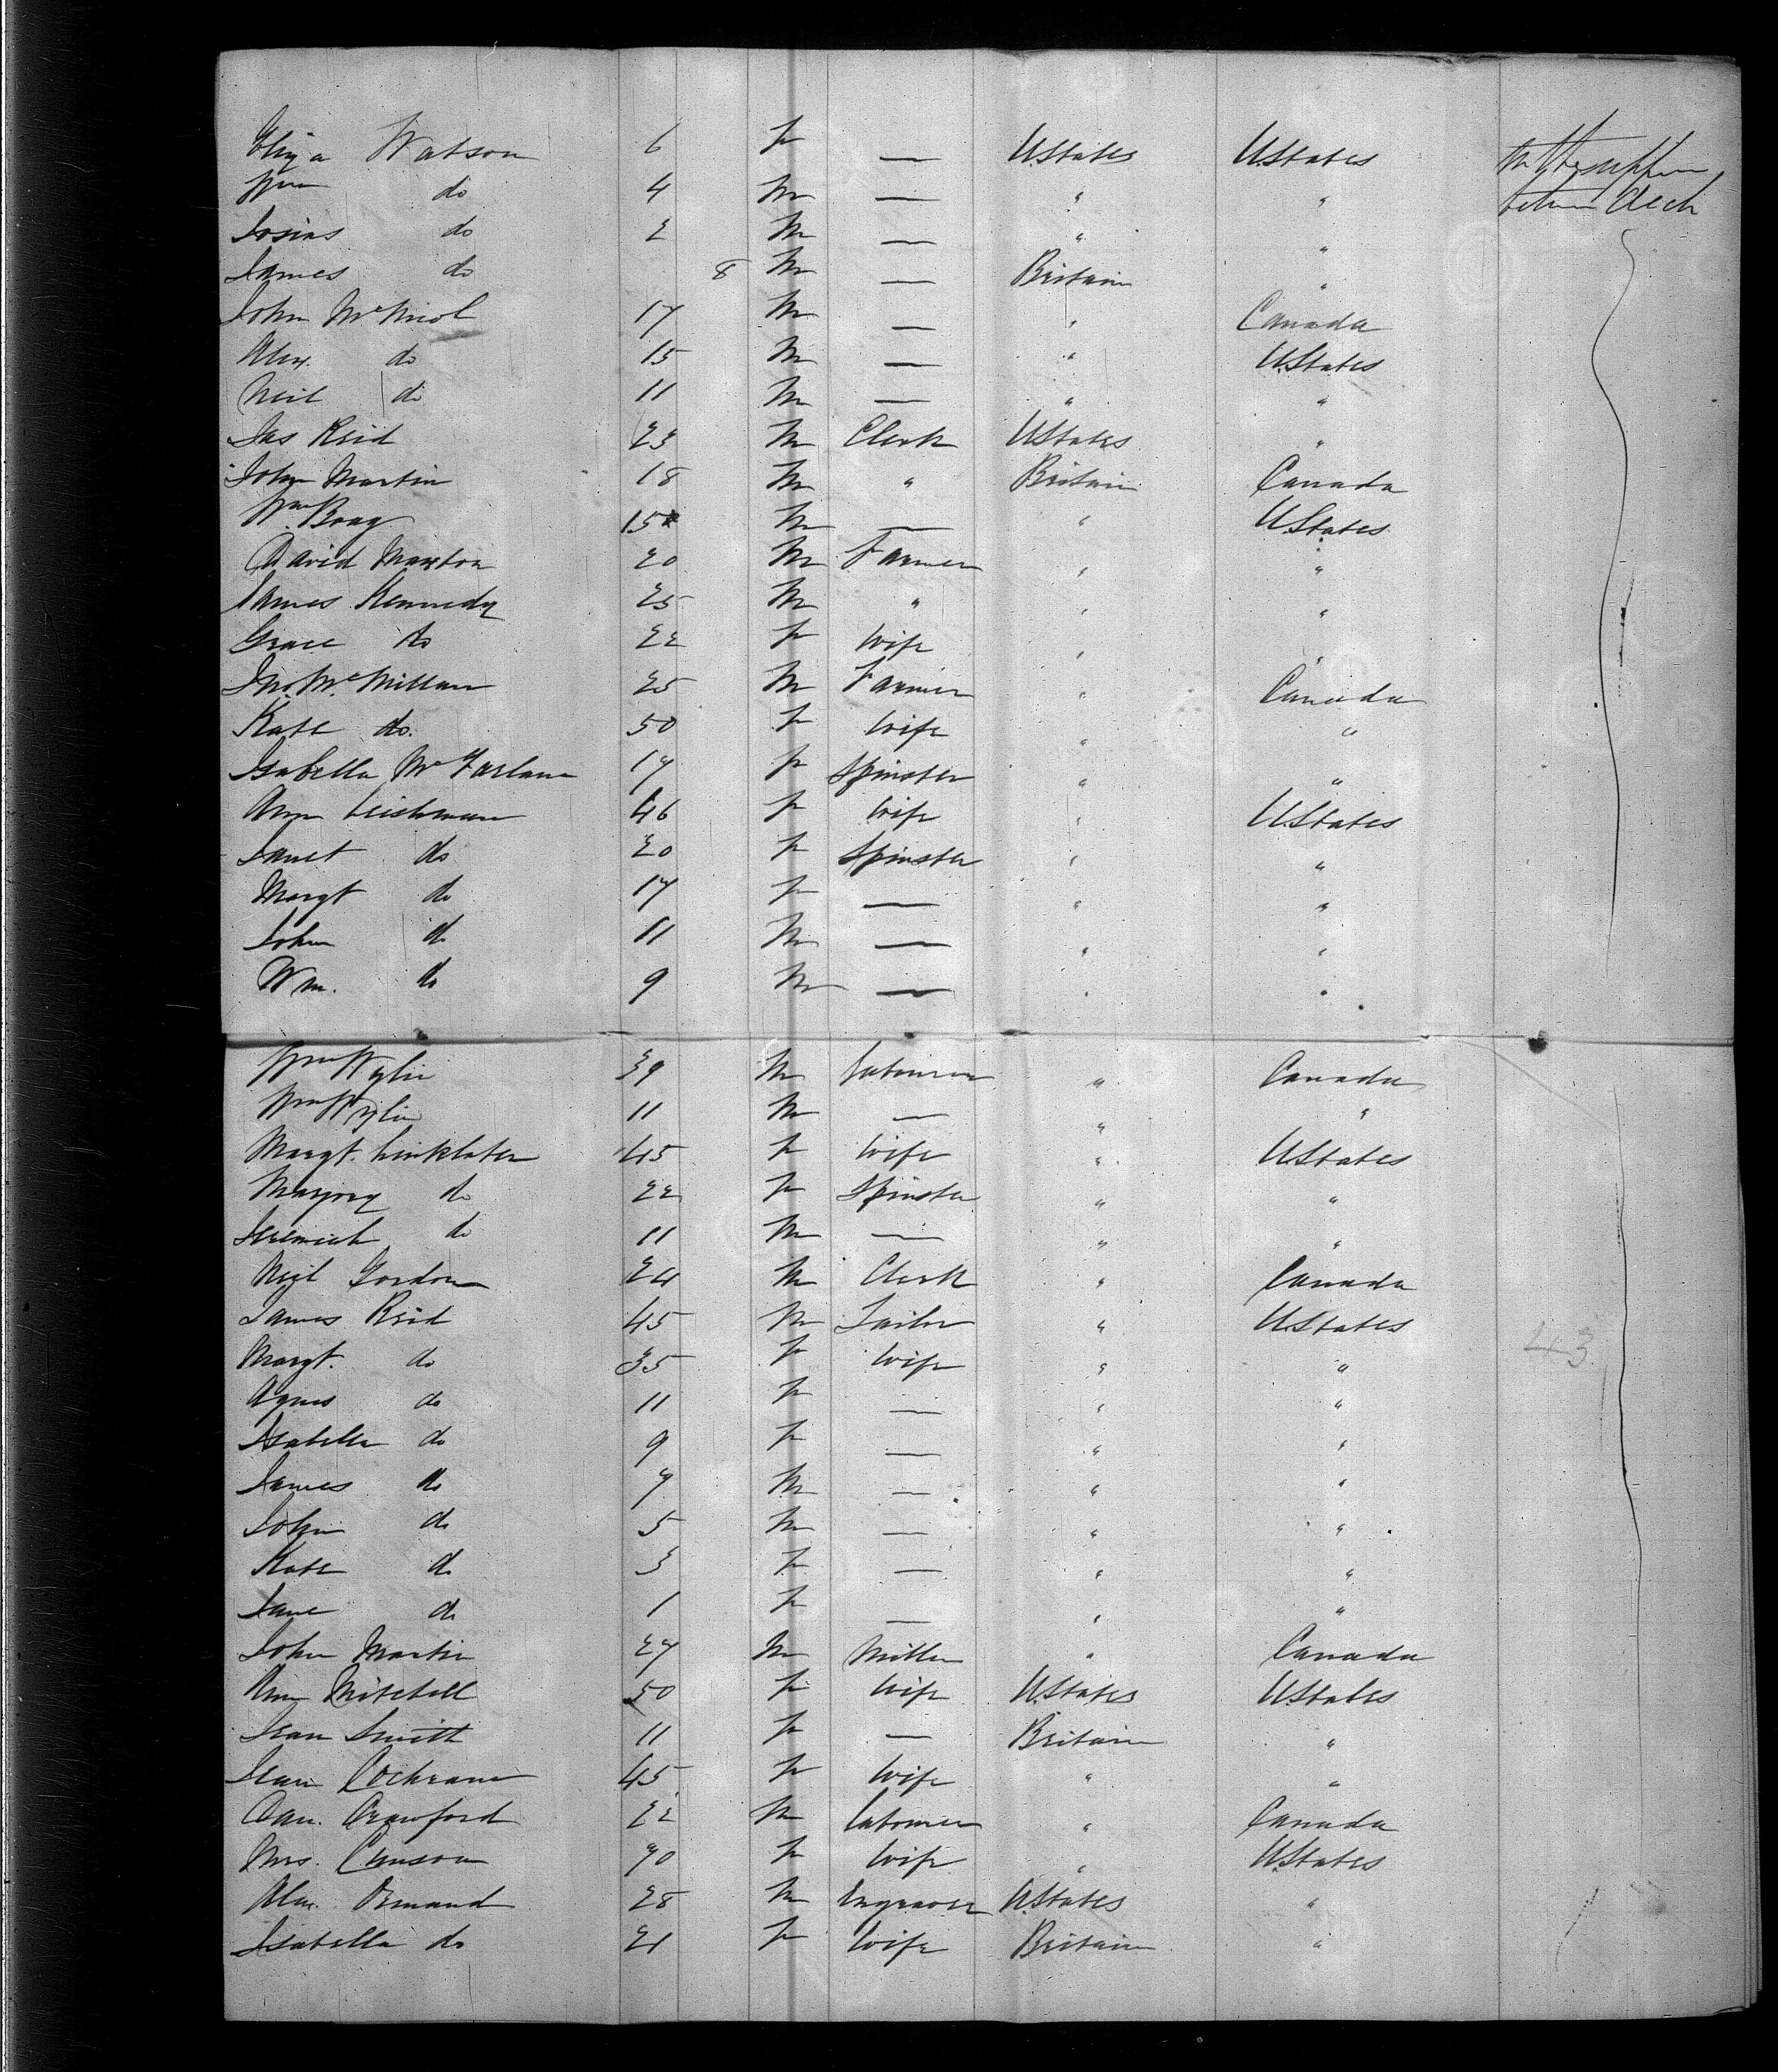 Eliza Watson 6 F — UStates UStates
Wm do 4 M — " "
Josias do 2 M — " "
James do 8 M — Britain "
John McNicol 17 M — " Canada
Alex. do 15 M — " UStates
Neil do 11 M — " "
Jas Reid 23 M Clerk UStates "
John Martin 18 M " Britain Canada
Wm Boag 15 M — " UStates
David Maxton 20 M Farmer " "
James Kennedy 25 M " " "
Grace do 22 F Wife " "
Jno. McMillan 25 M Farmer " Canada
Kate do. 50 F Wife " "
Isabella McFarlane 17 F Spinster " "
Ann Leishman 46 F Wife " UStates
Janet do 20 F Spinster " "
Margt do 17 F — " "
John do 11 M — " "
Wm. do 9 M — " "
Wm Wylie 39 M Labourer " Canada
Wm Wylie 11 M — " "
Margt. Linklater 45 F Wife " UStates
Marjory do 22 F Spinster " "
Jeremiah do 11 M — " "
Neil Gordon 24 M Clerk " Canada
James Reid 45 M Tailor " UStates
Margt. do 35 F Wife " "
Agnes do 11 F — " "
Isabella do 9 F — " "
James do 7 M — " "
John do 5 M — " "
Kate do 3 F — " "
Jane do 1 F — " "
John Martin 27 M Miller " Canada
Ann Mitchell 50 F Wife UStates UStates
Jean Smith 11 F — Britain "
Jean Cochrane 45 F Wife " "
Dan. Crawford 22 M Labourer " Canada
Mrs. 70 F Wife " UStates
Alex. Ormand 28 M Engraver UStates "
Isabella do 21 F Wife Britain "
43